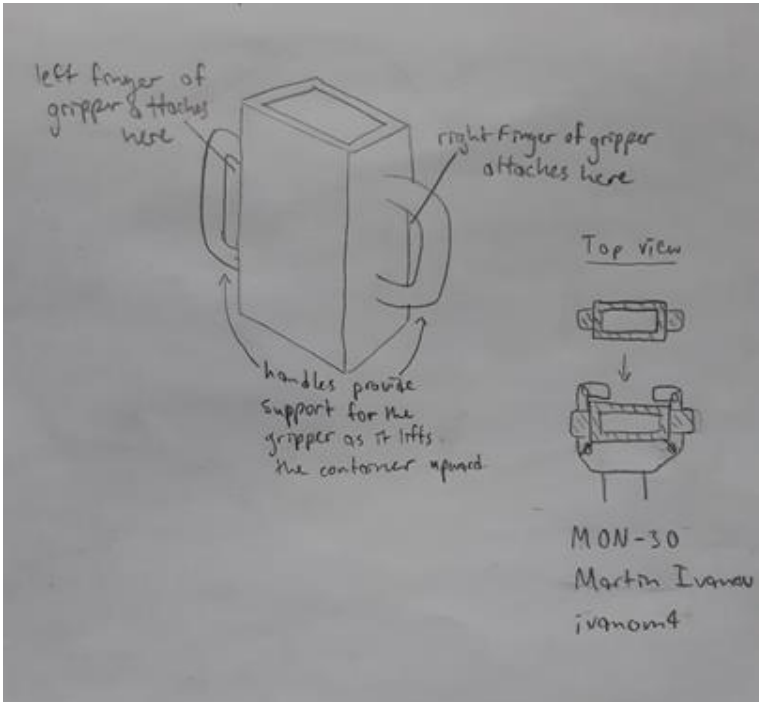 left finger of
gripper attaches
here
right finger of gripper
attaches here
Top view
handles provide
support for the
gripper as it lifts
the container upward
MON-30
Martin Ivanov
ivanom4